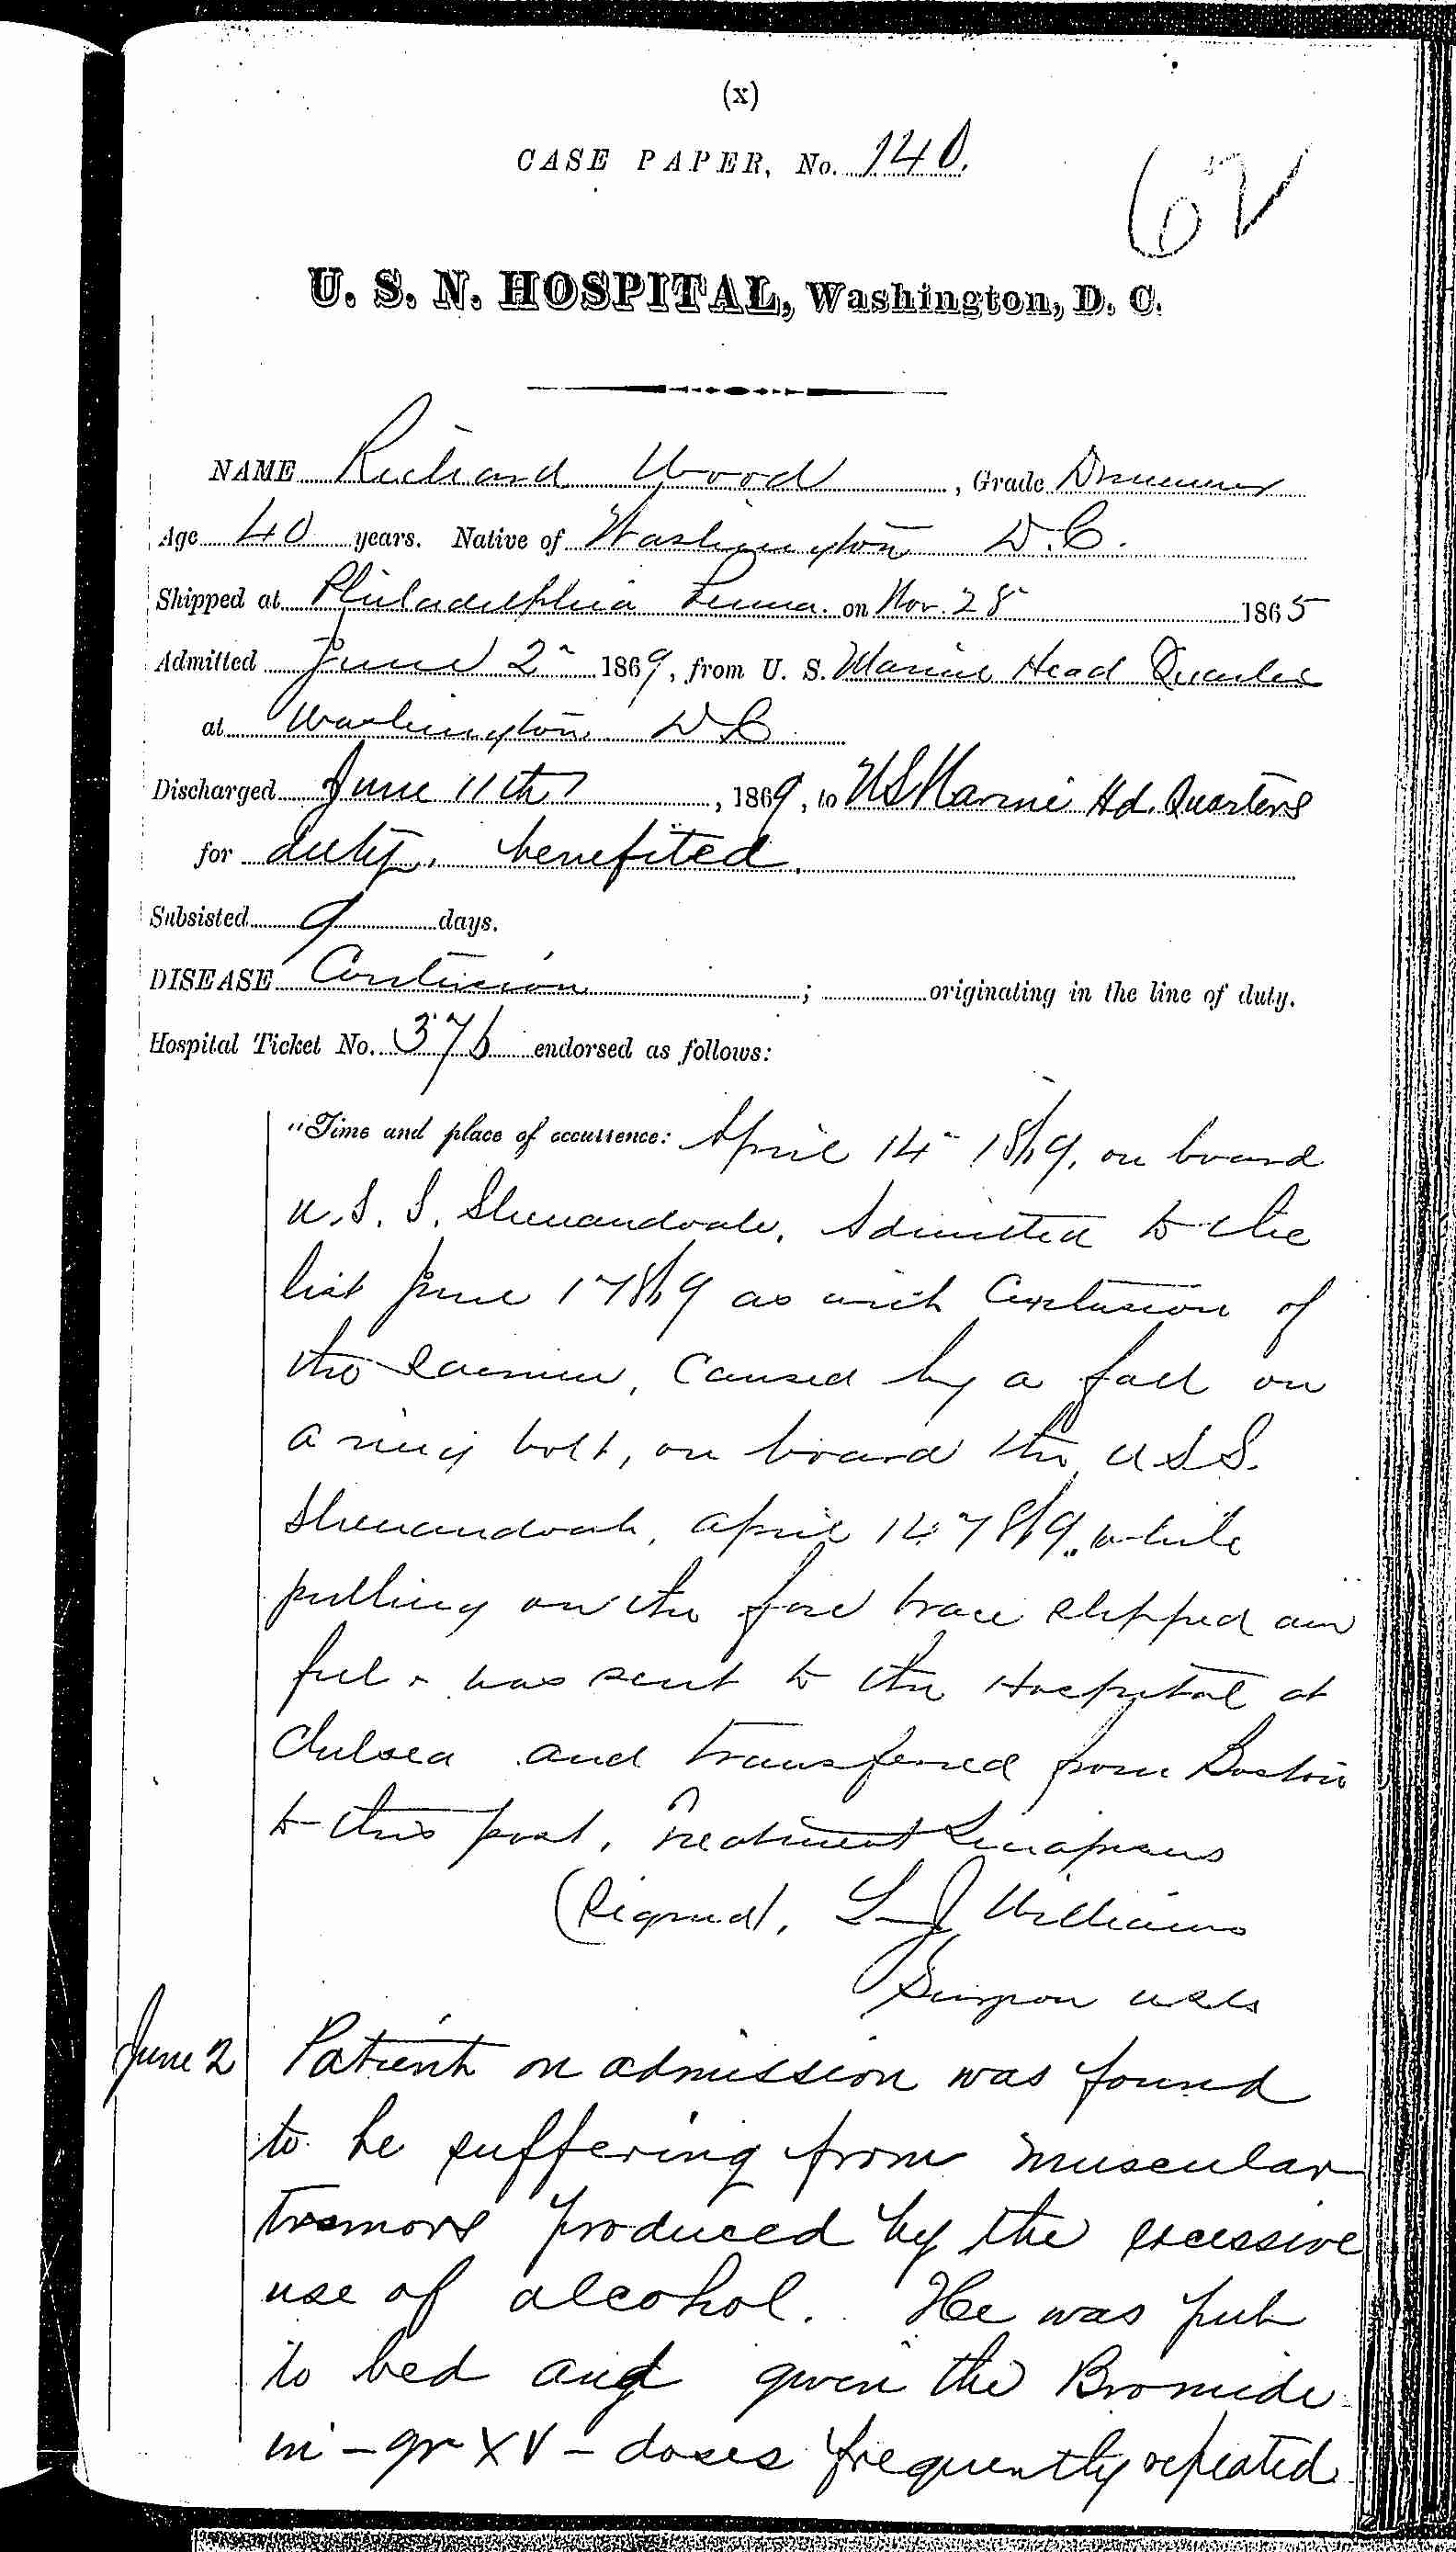 (x)
CASE PAPER, No. 140.
62
U. S. N. HOSPITAL, Washington, D. C.
NAME Richard Wood, Grade Drummer
Age 40 years. Native of Washington D.C.
Shipped at Philadelphia Penna. on Nov. 28 1865
Admitted June 2" 1869, from U. S. Marine Head Quarters
at Washington D C
Discharged June 11th, 1869, to US Marine Hd. Quarters
for duty, benefited.
Subsisted 9 days.
DISEASE Contusion; originating in the line of duty.
Hospital Ticket No. 376 endorsed as follows:
"Time and place of occurrence: April 14" 1869, on board
U.S.S. Shenandoah, Admitted to the
list June 1" 1869 as with Contusion of
the Sacrum, Caused by a fall on
a ring bolt, on board the U S S.
Shenandoah, April 14" 1869, while
pulling on the fore brace slipped and
fell & was sent to the Hospital at
Chelsea and transferred from Boston
to this post, Treatment Sinapisms
(Signed), L J Williams
Surgeon USN
June 2 Patient on admission was found
to be suffering from muscular
tremors produced by the excessive
use of alcohol. He was put
to bed and given the Bromide
in - gr XV - doses frequently repeated